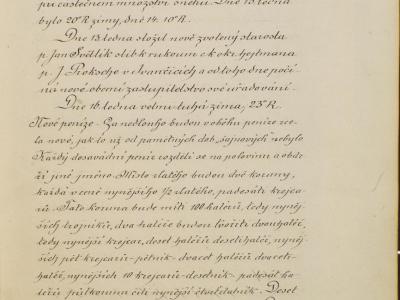 při částečném množství sněhu. Dne 13. ledna
bylo 20° R zimy, dne 14. 10° R.
Dne 13. ledna složil nově zvolený starosta
p. Jan Světlík slib k rukoum c.k. okr. hejtmana
p. J. Proksche v Ivančicích a od toho dne počí-
ná nové obecní zastupitelstvo své úřadování.
Dne 16. ledna velmi tuhá zima, 23° R.
Nové peníze. Za nedlouho budou v oběhu peníze ze-
la nové, jak to už od pamětných dob, šajnových nebylo
Každý dosavadní peníz rozdělí se na polovinu a obdr-
ží jiné jméno. Místo zlatého budou dvě koruny,
každá v ceně nynějšího 1/2 zlatého, padesáti krejca-
rů. Tato koruna bude míti 100 haléřů, tedy nyněj-
ších trojníků, dva haléře budou tvořiti dvouhaléř,
tedy nynější krejcar, deset haléřů desetihaléř, nyněj-
ších pět krejcarů - pětník - dvacet haléřů dvaceti-
haléř, nynějších 10 krejcarů - desetník - padesát ha-
léřů půlkorunu čili nynější čtvrtzlatník. Deset